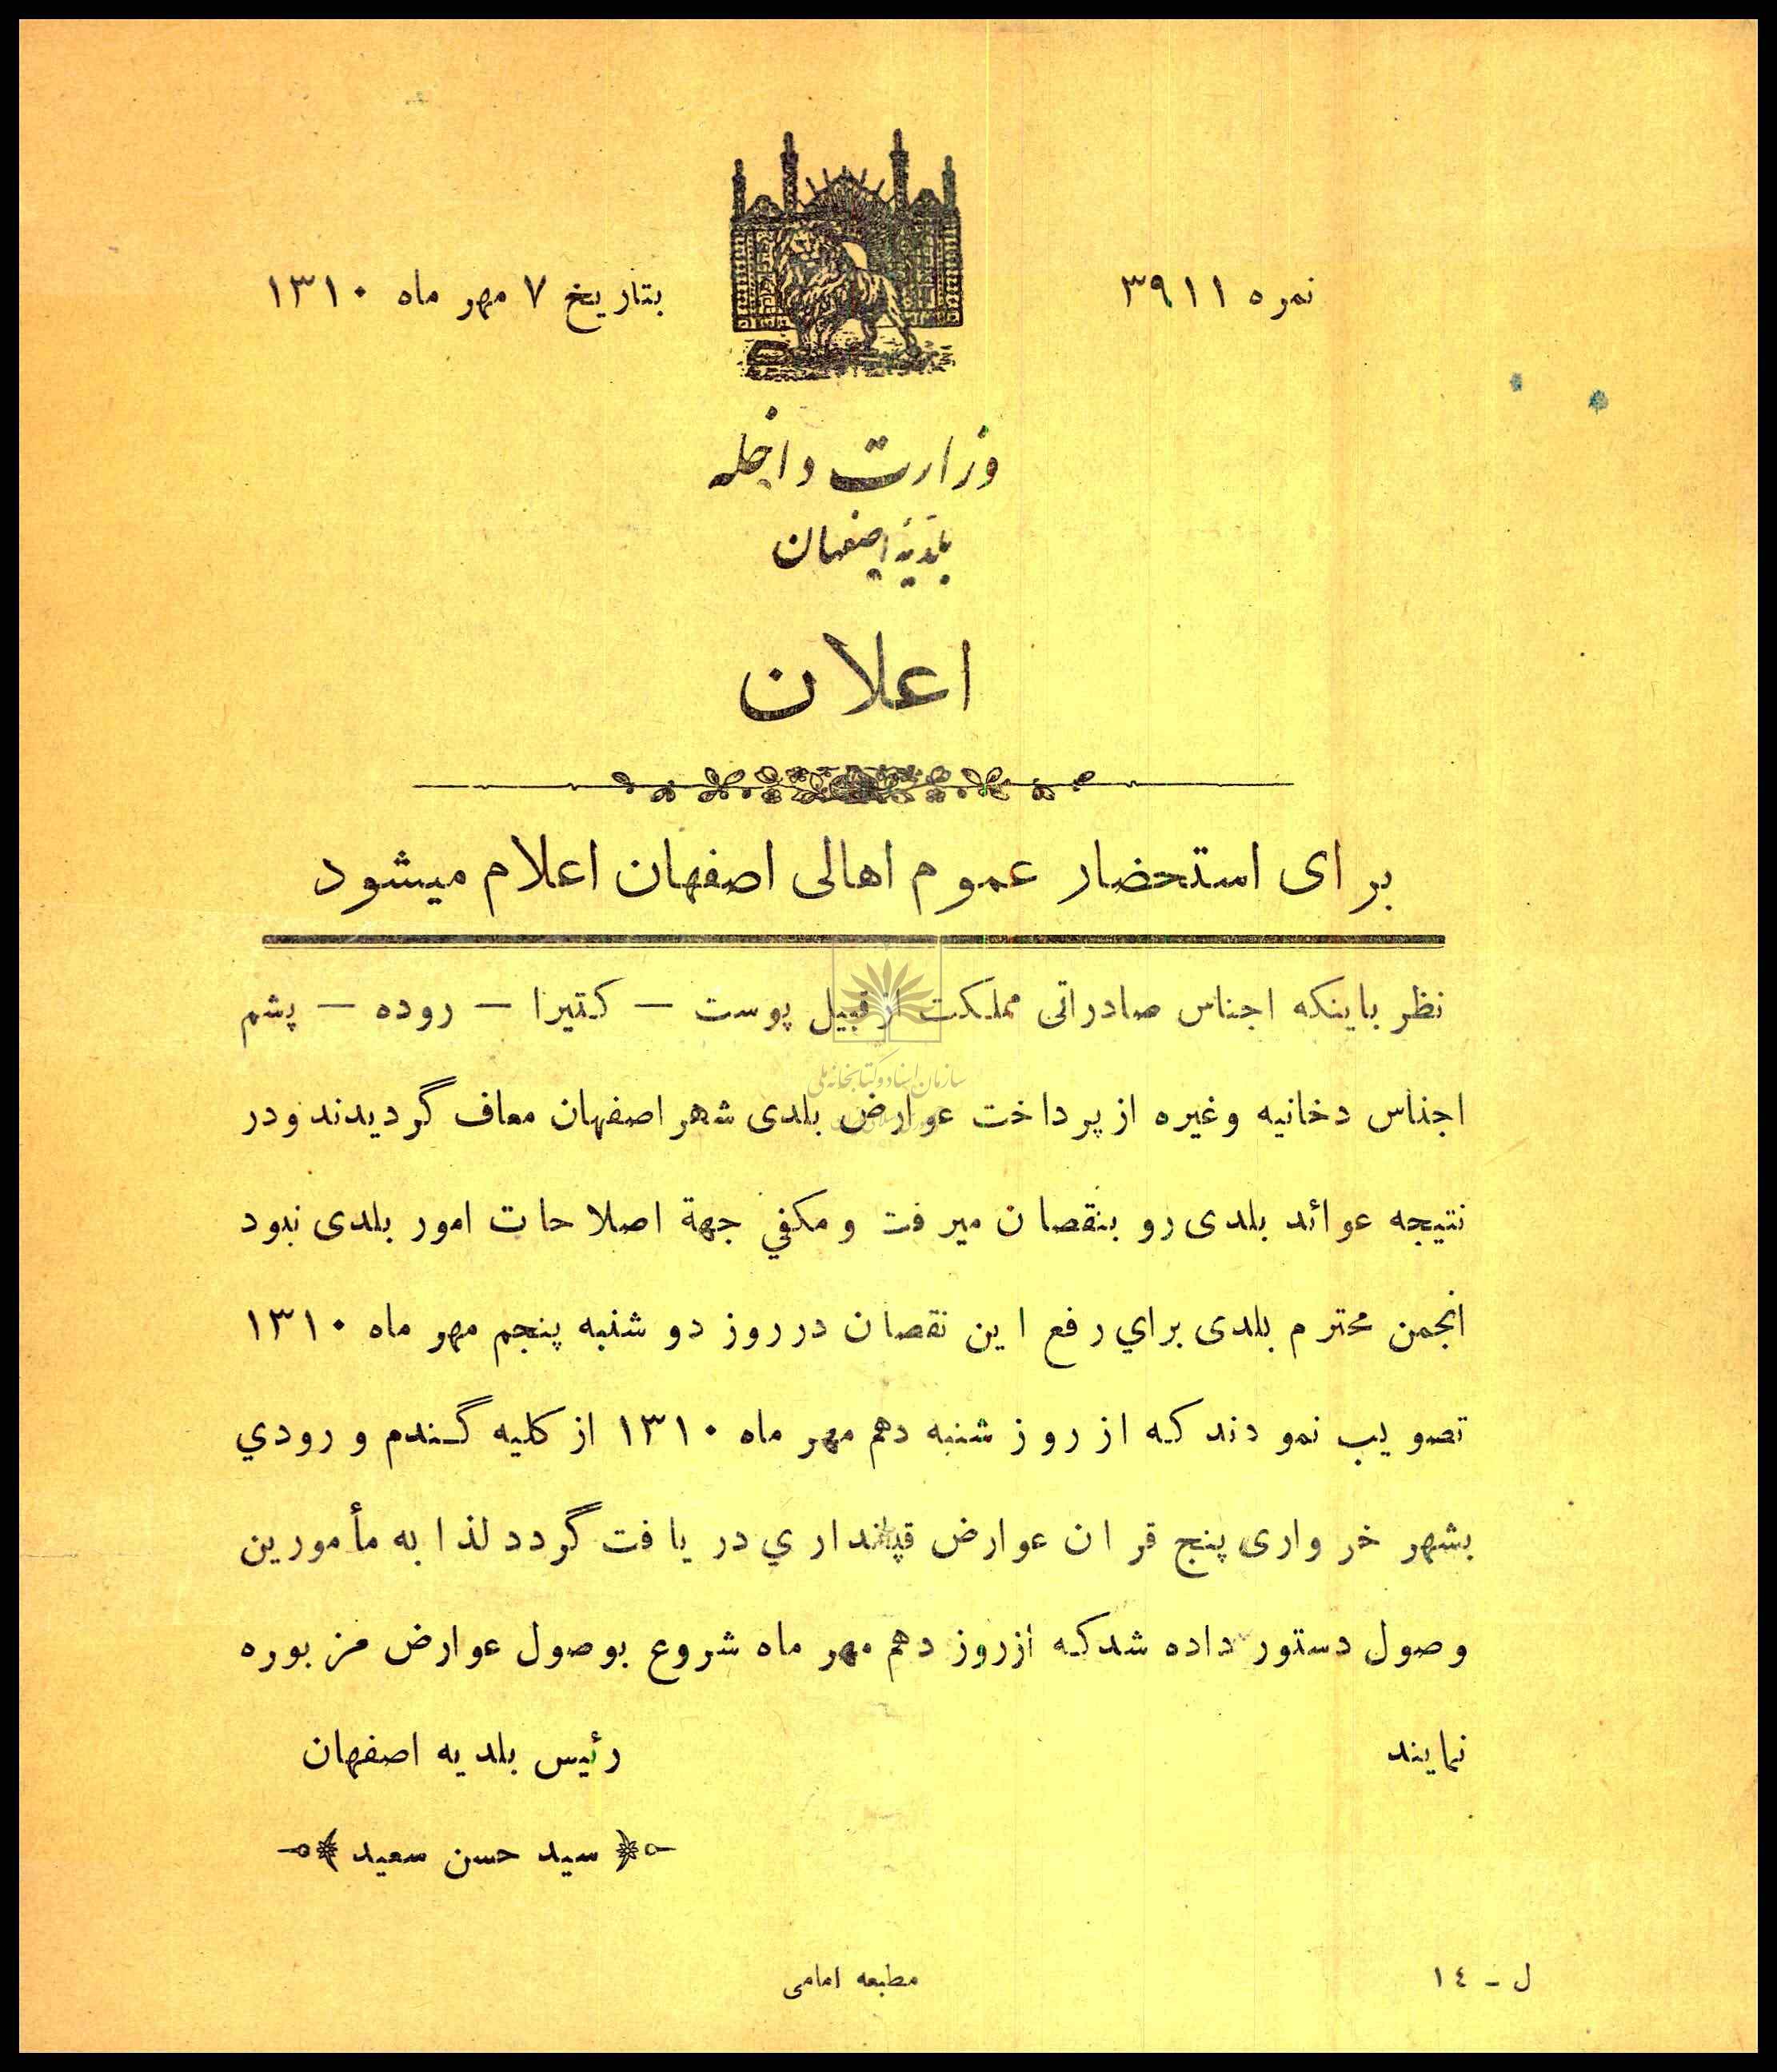 نمره ۳۹۱۱
بتاریخ ۷ مهر ماه ۱۳۱۰
وزارت داخله
بلدیهٔ اصفهان
اعلان
برای استحضار عموم اهالی اصفهان اعلام میشود
نظر باینکه اجناس صادراتی مملکت از قبیل پوست — کتیرا — روده — پشم
سازمان اسناد و کتابخانه ملی
اجناس دخانیه وغیره از پرداخت عوارض بلدی شهر اصفهان معاف گردیدند ودر
نتیجه عوائد بلدی رو بنقصان میرفت ومکفي جهة اصلاحات امور بلدی نبود
انجمن محترم بلدی براي رفع این نقصان در روز دو شنبه پنجم مهر ماه ۱۳۱۰
تصویب نمودند که از روز شنبه دهم مهر ماه ۱۳۱۰ از کلیه گندم و رودي
بشهر خرواری پنج قران عوارض قپانداري دریافت گردد لذا به مأمورین
وصول دستور داده شد که ازروز دهم مهر ماه شروع بوصول عوارض مزبوره
نمایند
رئیس بلدیه اصفهان
سید حسن سعید
ل - ١٤
مطبعه امامی